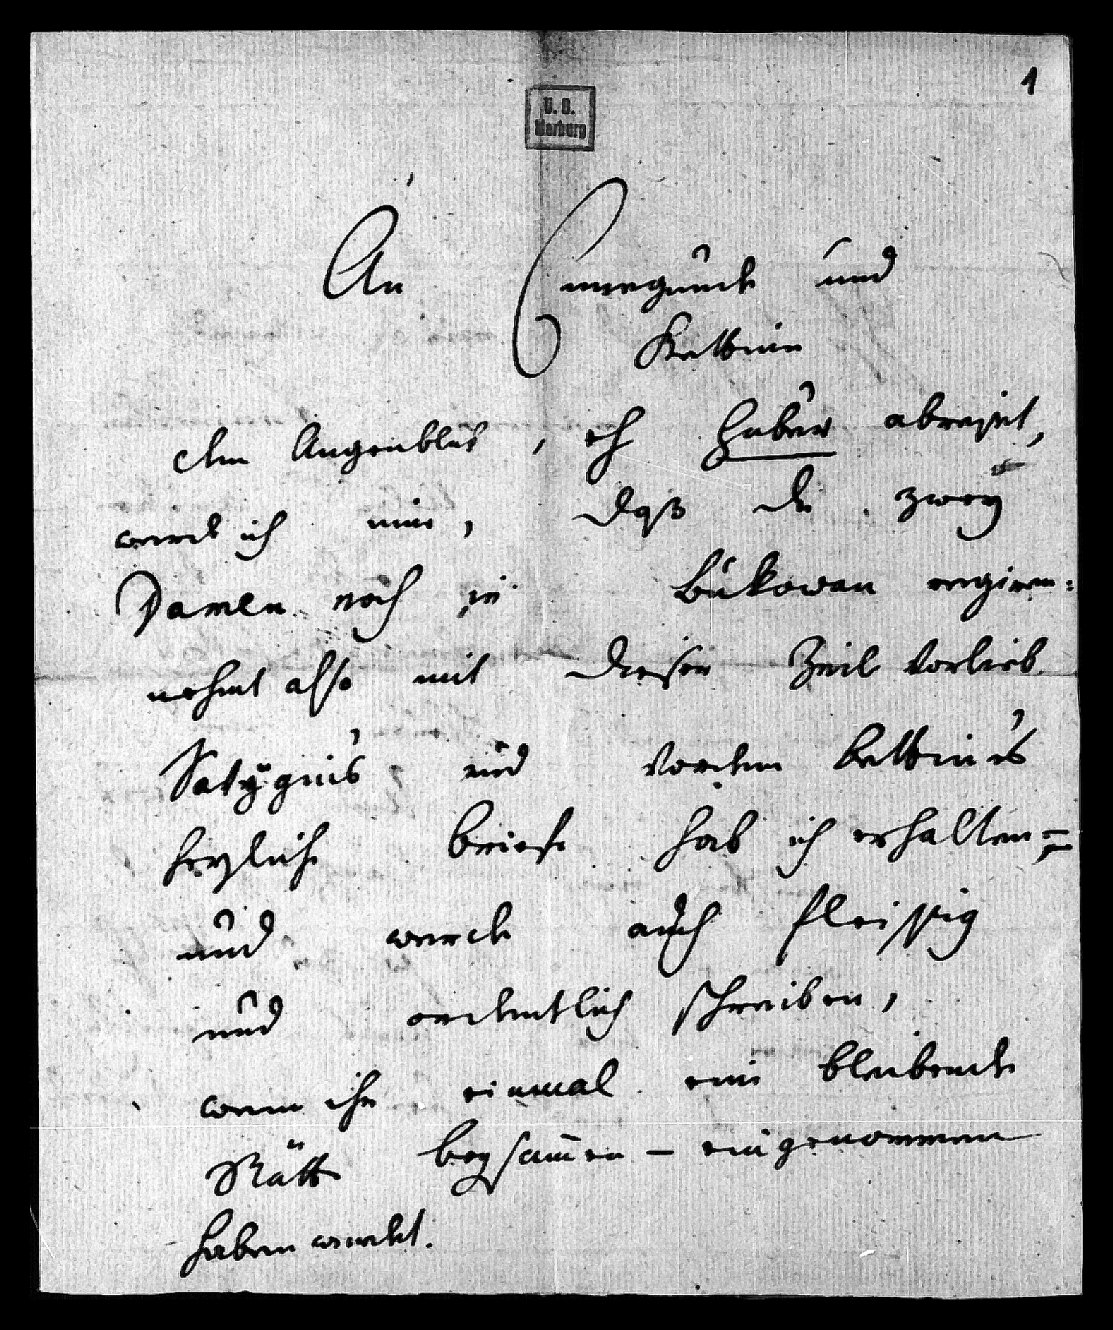 1
U. B.
Marburg
An Cunegunde und
Bettine
Im Augenblick, eh Huber abreist,
werd ich inne, daß die zwey
Damen noch in Bukowan regiren:
nehmt also mit dieser Zeil vorlieb
Savignis und vordem Bettinens
herzliche Briefe hab ich erhalten =
und werde auch fleissig
und ordentlich schreiben,
wenn ihr einmal eine bleibende
Stätte beysam̄en – eingenommen
haben werdet.